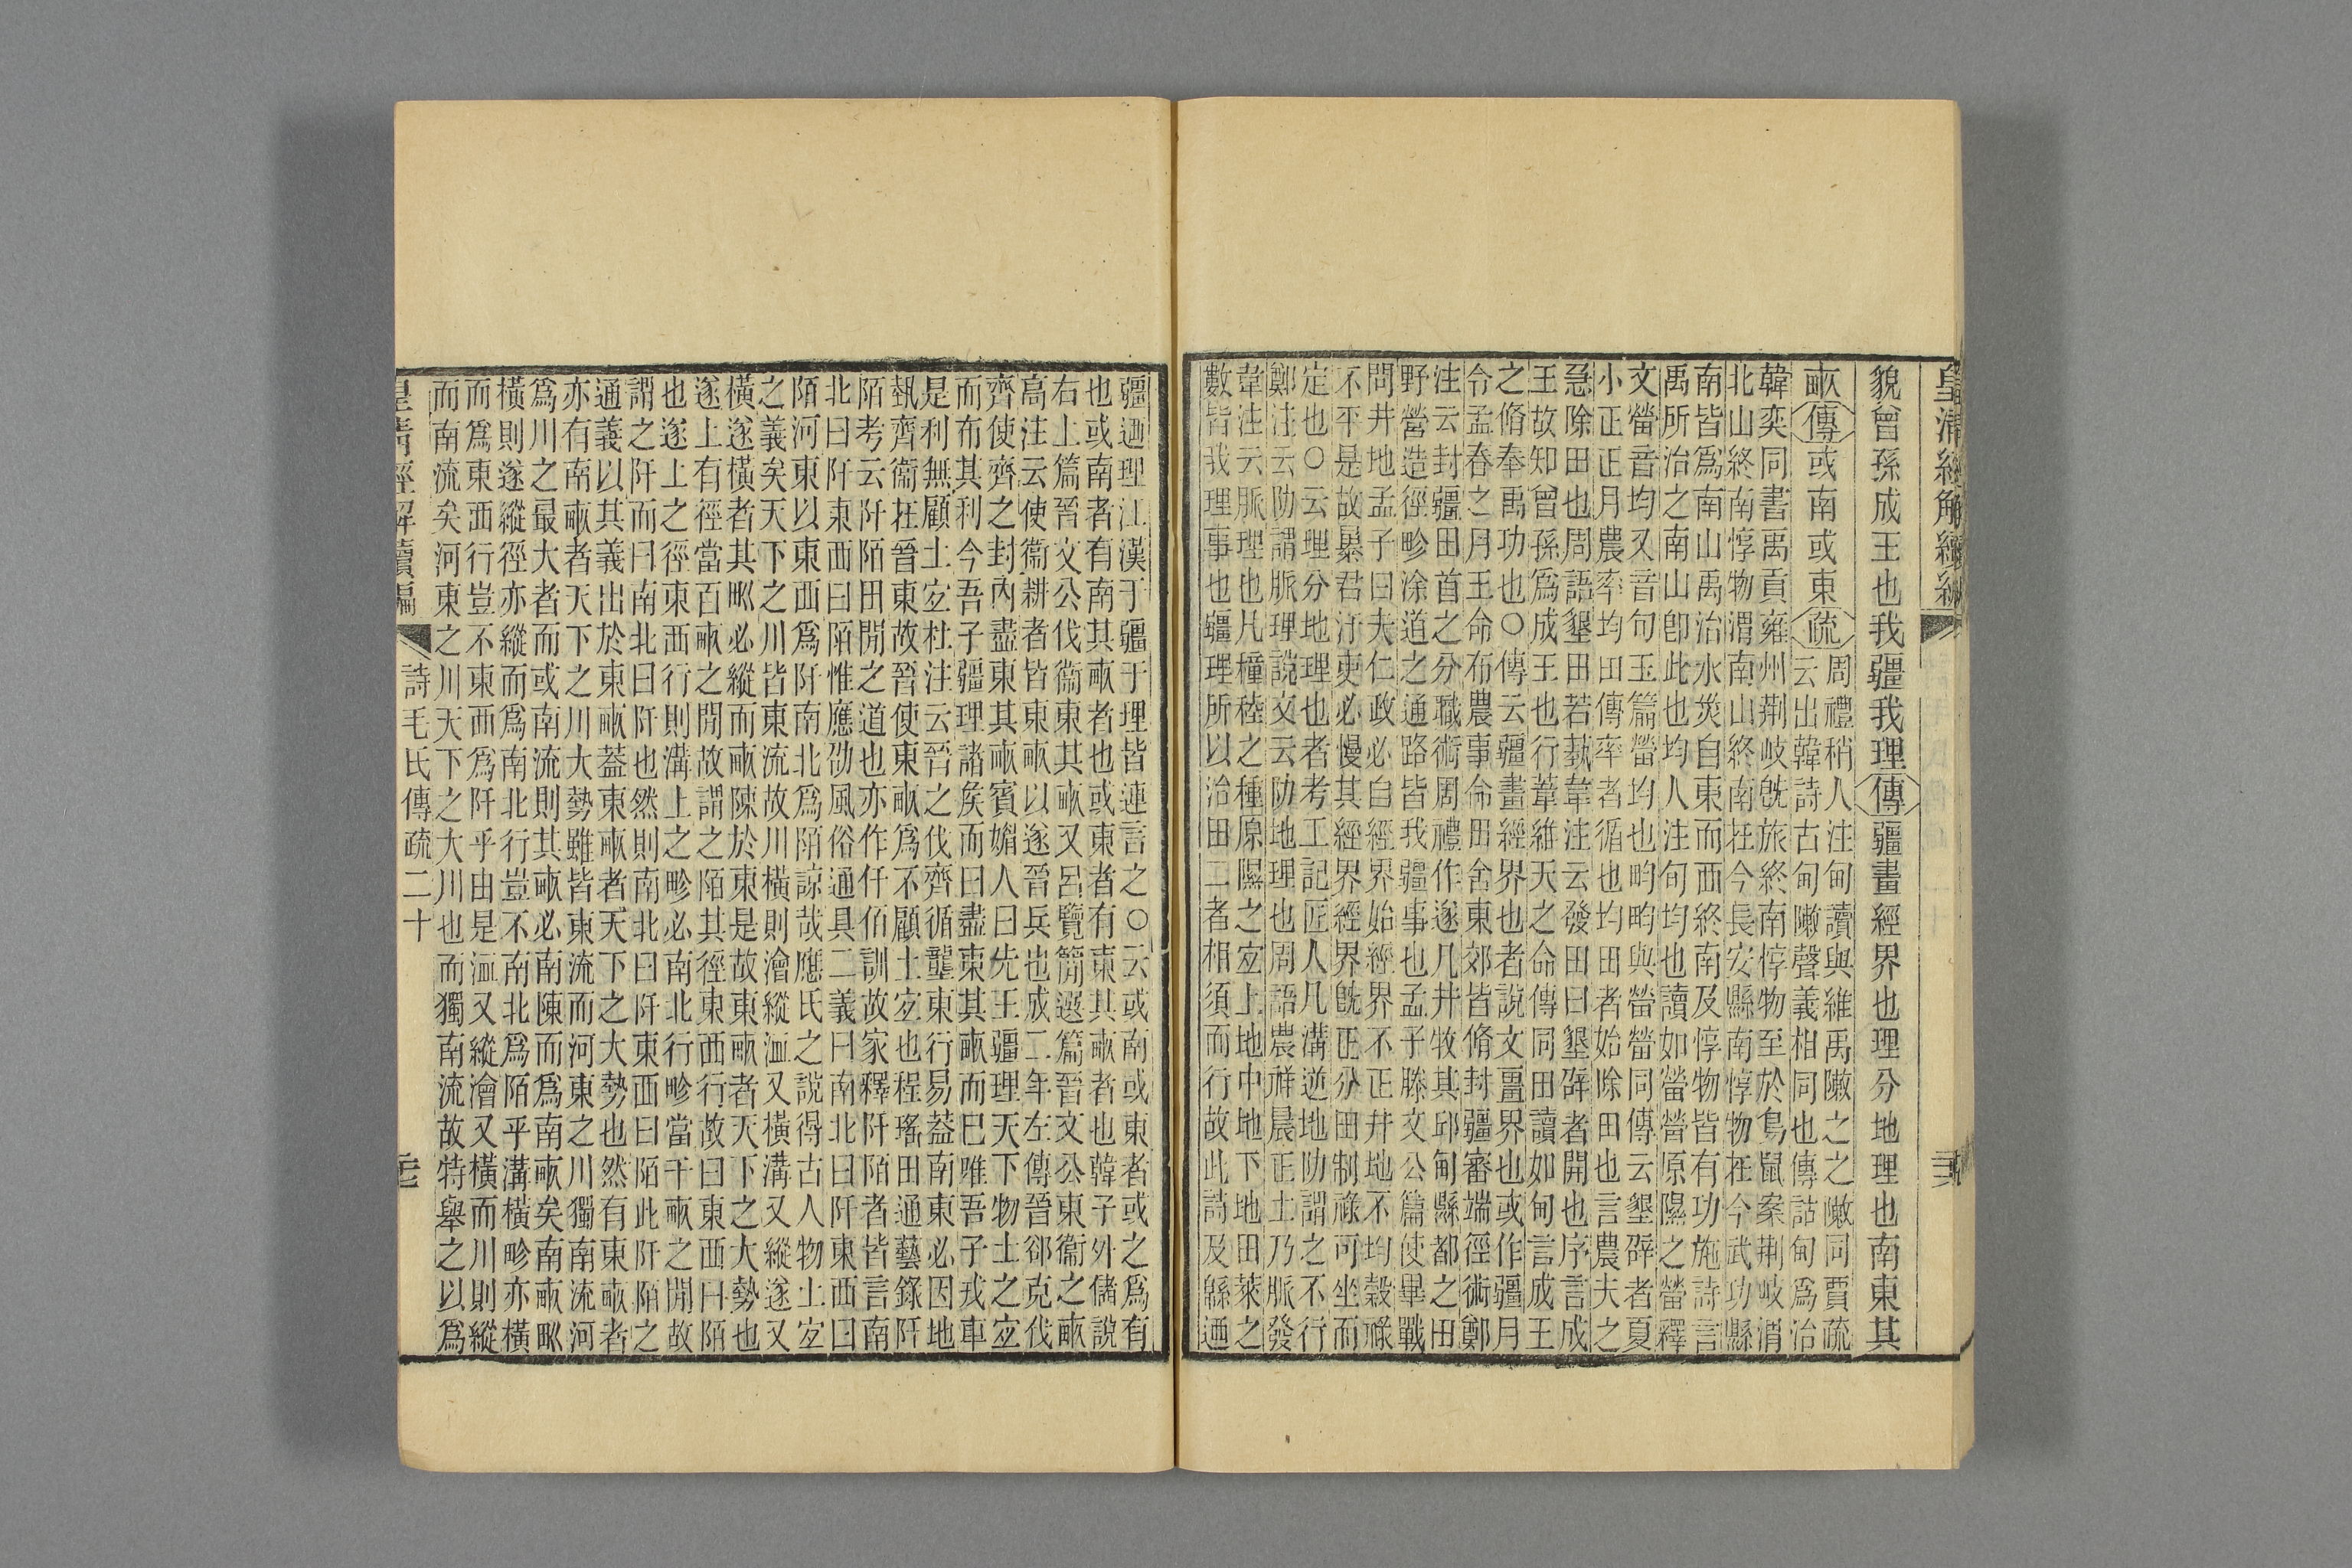 皇清經解續編
貌曾孫成王也我疆我理傳疆畫經界也理分地理也南東其
畝傳或南或東疏
周禮稍人注甸讀與維禹敶之之敶同賈疏
云出韓詩古甸敶聲義相同也傳詁甸爲治
韓奕同書禹貢雍州荆岐旣旅終南惇物至於鳥鼠案荆岐渭
北山終南惇物渭南山終南在今長安縣南惇物在今武功縣
南皆爲南山禹治水災自東而西終南及惇物皆有功施詩言
禹所治之南山卽此也均人注旬均也讀如㽦㽦原隰之㽦釋
文㽦音均又音旬玉篇㽦均也畇畇與㽦㽦同傳云墾辟者夏
小正正月農率均田傳率者循也均田者始除田也言農夫之
急除田也周語墾田若埶韋注云發田曰墾辟者開也序言成
王故知曾孫爲成王也行葦維天之命傳同田讀如甸言成王
之脩奉禹功也○傳云疆畫經界也者說文畺界也或作疆月
令孟春之月王命布農事命田舍東郊皆脩封疆審端徑術鄭
注云封疆田首之分職術周禮作遂凡井牧其邱甸縣都之田
野營造徑畛涂道之通路皆我疆事也孟子滕文公篇使畢戰
問井地孟子曰夫仁政必自經界始經界不正井地不均穀祿
不平是故暴君汙吏必慢其經界經界旣正分田制祿可坐而
定也○云理分地理也者考工記匠人凡溝逆地阞謂之不行
鄭注云阞謂脈理說文云阞地理也周語農祥晨正土乃脈發
韋注云脈理也凡穜稑之種原隰之宐上地中地下地田萊之
數皆我理事也疆理所以治田二者相須而行故此詩及緜迺
疆迺理江漢于疆于理皆連言之○云或南或東者或之爲有
也或南者有南其畝者也或東者有東其畝者也韓子外儲說
右上篇晉文公伐衞東其畝又呂覽簡選篇晉文公東衞之畝
高注云使衞耕者皆東畝以遂晉兵也成二年左傳晉郤克伐
齊使齊之封內盡東其畝賓媚人曰先王疆理天下物土之宐
而布其利今吾子疆理諸矦而曰盡東其畝而已唯吾子戎車
是利無顧土宐杜注云晉之伐齊循壟東行易蓋南東必因地
埶齊衞在晉東故晉使東畝爲不顧土宐也程瑤田通藝錄阡
陌考云阡陌田閒之道也亦作仟佰訓故家釋阡陌者皆言南
北曰阡東西曰陌惟應劭風俗通具二義曰南北曰阡東西曰
陌河東以東西爲阡南北爲陌諒哉應氏之說得古人物土宐
之義矣天下之川皆東流故川橫則澮縱洫又橫溝又縱遂又
橫遂橫者其甽必縱而畝陳於東是故東畝者天下之大勢也
遂上有徑當百畝之閒故謂之陌其徑東西行故曰東西曰陌
也遂上之徑東西行則溝上之畛必南北行畛當千畝之閒故
謂之阡而曰南北曰阡也然則南北曰阡東西曰陌此阡陌之
通義以其義出於東畝蓋東畝者天下之大勢也然有東畝者
亦有南畝者天下之川大勢雖皆東流而河東之川獨南流河
爲川之最大者而或南流則其畝必南陳而爲南畝矣南畝甽
橫則遂縱徑亦縱而爲南北行豈不南北爲陌乎溝橫畛亦橫
而爲東西行豈不東西爲阡乎由是洫又縱澮又橫而川則縱
而南流矣河東之川天下之大川也而獨南流故特舉之以爲
皇清經解續編
詩毛氏傳疏二十